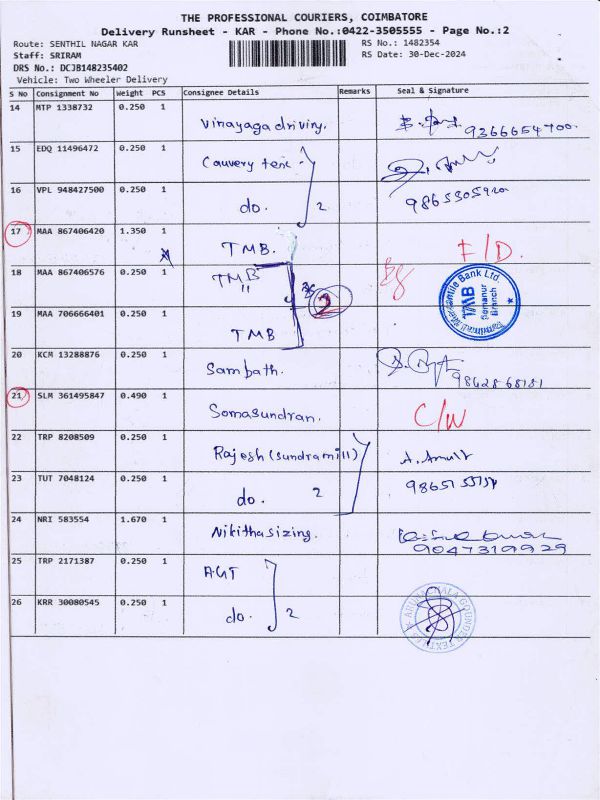 THE PROFESSIONAL COURIERS, COIMBATORE
Delivery Runsheet - KAR - Phone No.:0422-3505555 - Page No.:2
Route: SENTHIL NAGAR KAR RS No.: 1482354
Staff: SRIRAM RS Date: 30-Dec-2024
DRS No.: DCJB148235402
Vehicle: Two Wheeler Delivery
S No Consignment No Weight PCS Consignee Details Remarks Seal & Signature
14 MTP 1338732 0.250 1 Vinayaga driviry. 9366654700.
15 EDQ 11496472 0.250 1 Cauvery tex
16 VPL 948427500 0.250 1 do. 2
17 MAA 867406420 1.350 1 TMB.
18 MAA 867406576 0.250 1 TMB 2 Tamilnad Mercantile Bank Ltd. TMB Somanur Branch
19 MAA 706666401 0.250 1 TMB
20 KCM 13288876 0.250 1 Sambath.
21 SLM 361495847 0.490 1 Somasundran. C/W
22 TRP 8208509 0.250 1 Rajesh (sundramill)
23 TUT 7048124 0.250 1 do. 2
24 NRI 583554 1.670 1 Nikitha sizing. 9047319929
25 TRP 2171387 0.250 1 AGT
26 KRR 30080545 0.250 1 do. 2